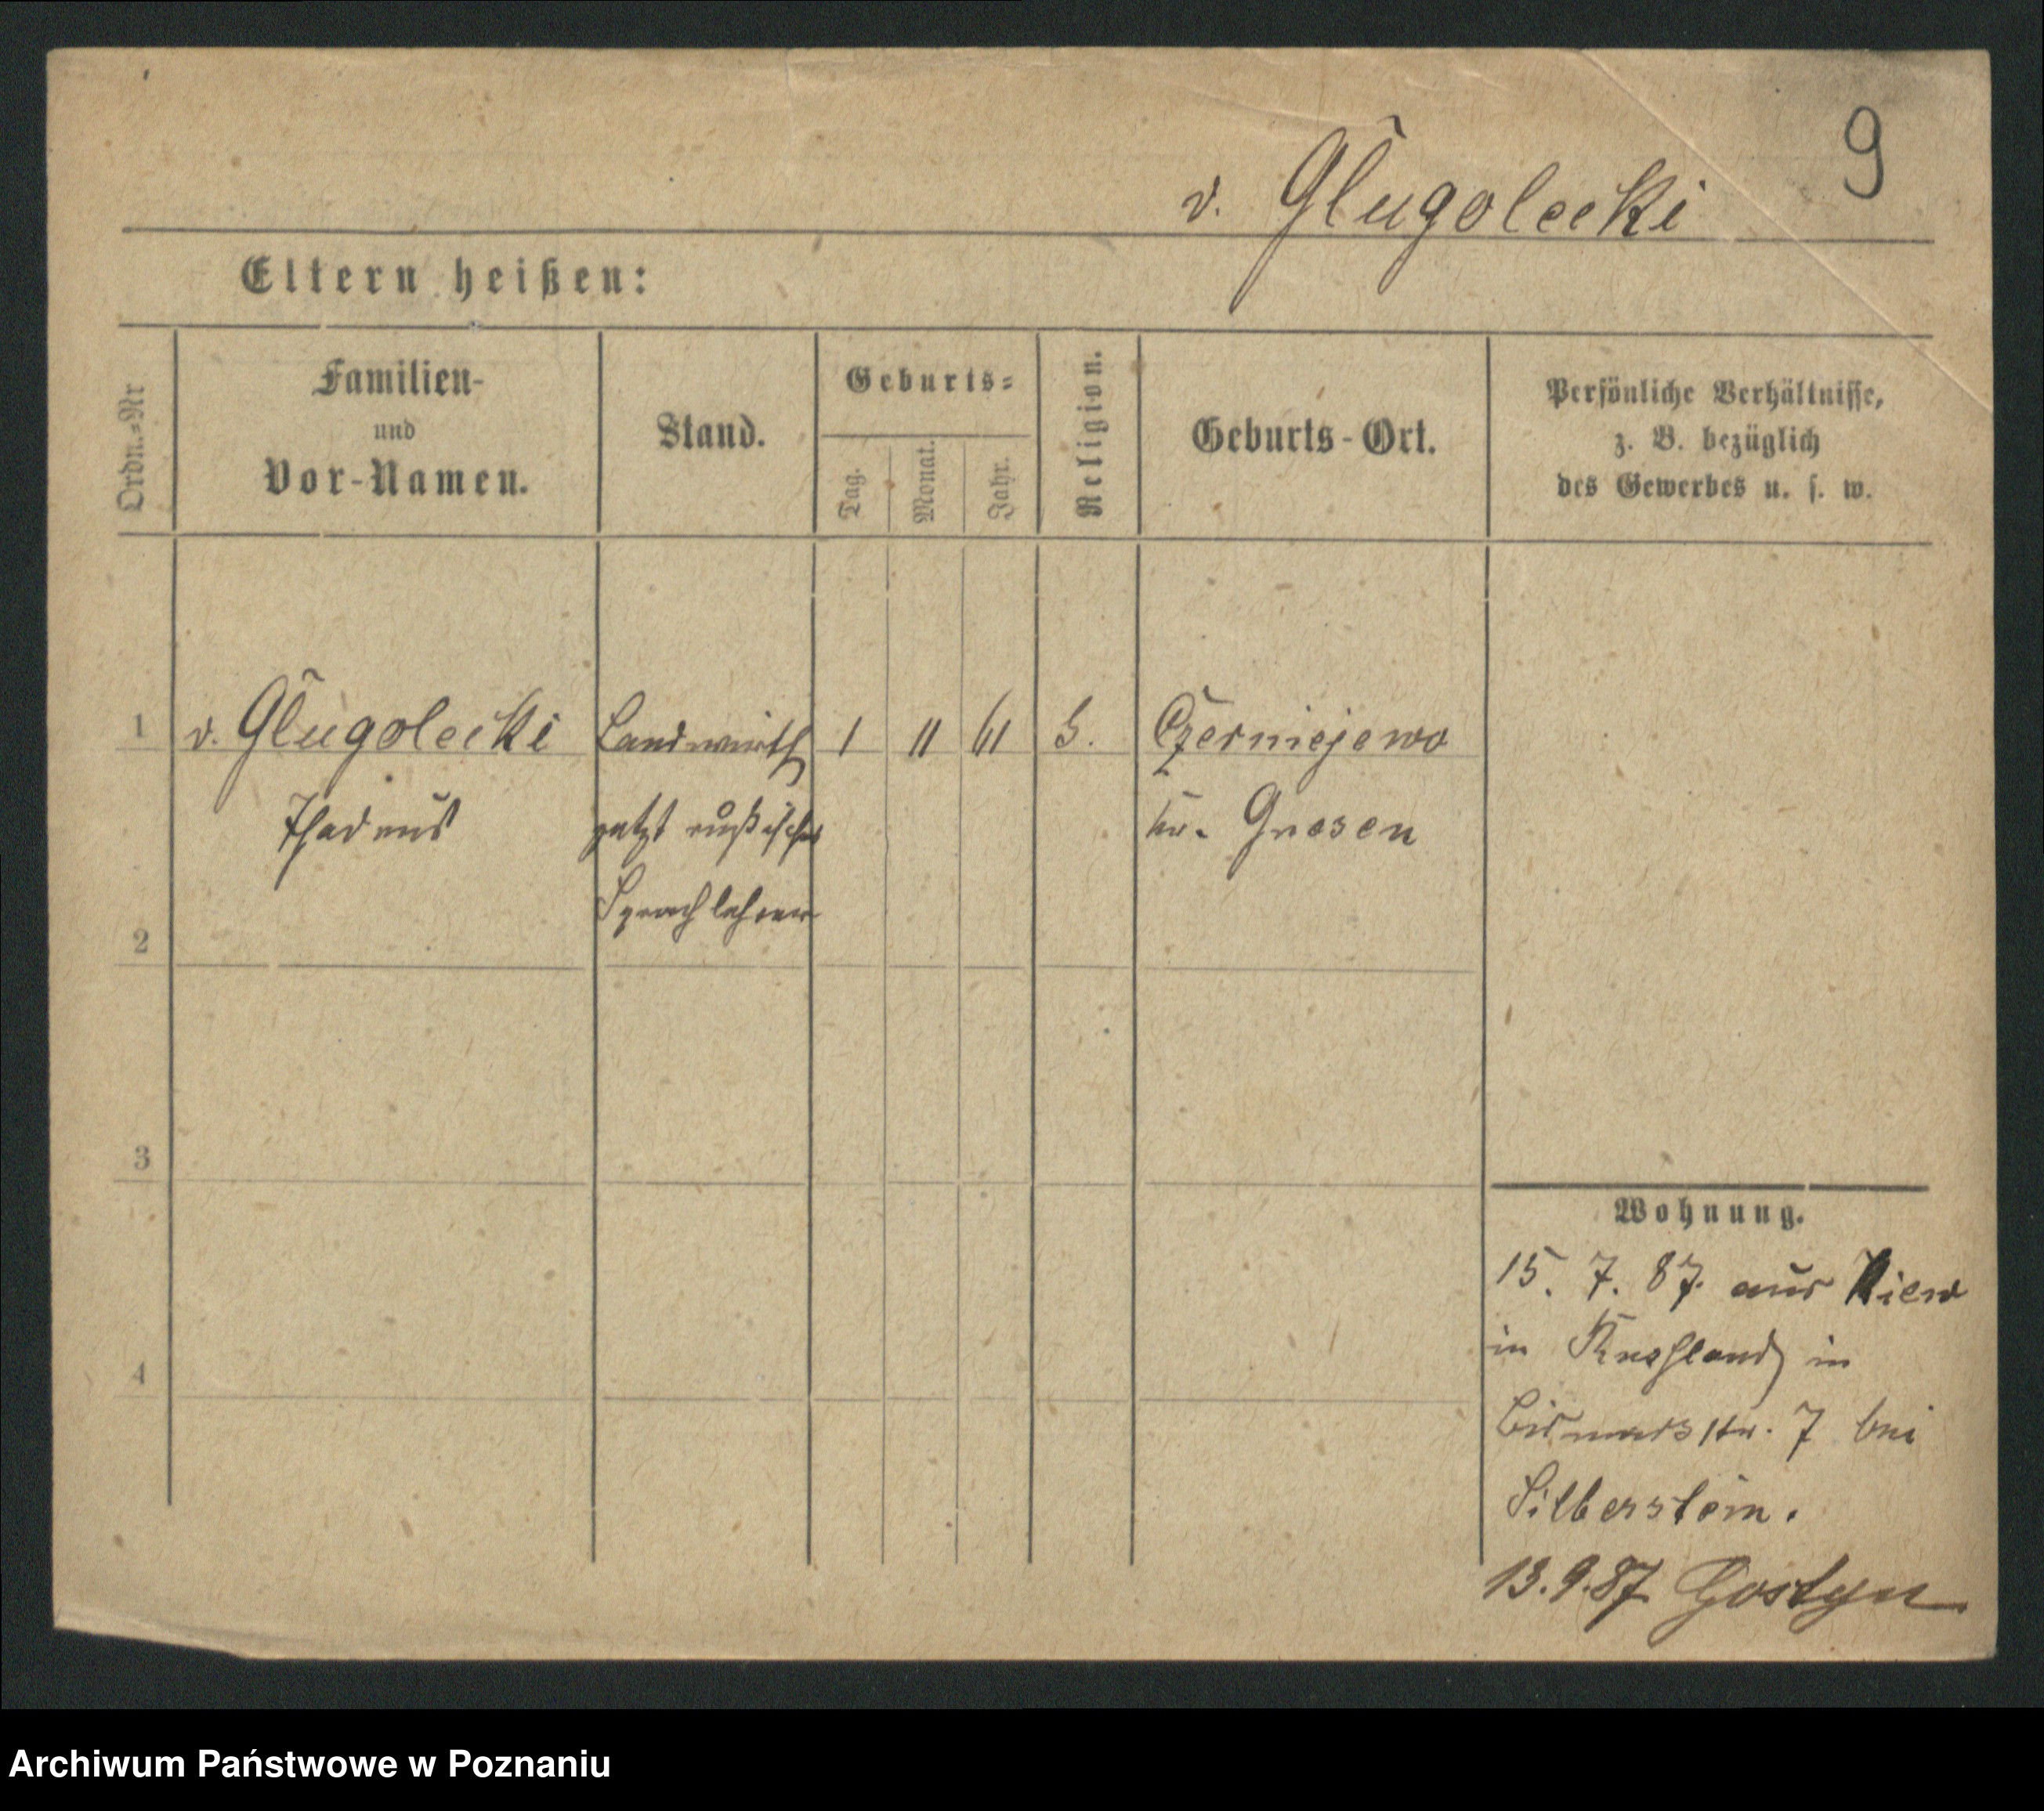 9
v. Glugoleckĩ
Eltern heißen:
Ordn.-Nr
Familien-
und
Vor-Namen.
Stand.
Geburts-
Tag.
Monat.
Jahr.
Religion.
Geburts-Ort.
Persönliche Verhältnisse,
z. B. bezüglich
des Gewerbes u. s. w.
1 v. Glugolecki Landwirth 1 11 61 Czerniejewo
Thadeus jetzt rußischer Kr. Gnesen
Sprachlehrer
2
3
4
Wohnung.
15. 7. 87. aus Kiew
in Russland in
Bismarkstr. 7 bei
Silberstein.
13. 9. 87 Gostyn
Archiwum Państwowe w Poznaniu